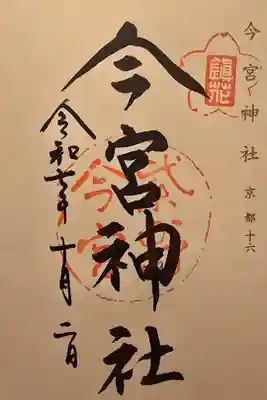 今宮神社 京都十六
鎭花
今宮神社
令和七年 十月二日